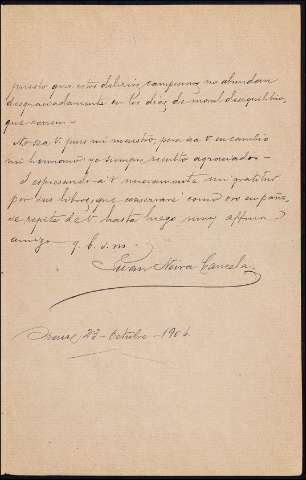 puesto que estos delirios campesinos no abundan
desgraciadamente en los días de moral desequilibrio,
que corren.
No sea V. pues mi maestro, pero sea V. en cambio
mi hermano; yo siempre agraciado
I expresando a V. nuevamente mi gratitud
por sus libros, que conservaré como oro en paño,
se repite de V. hasta luego muy affmo
amigo q. b. s. m.
Juan Neira Cancela
Orense 23 - Octubre - 1906.